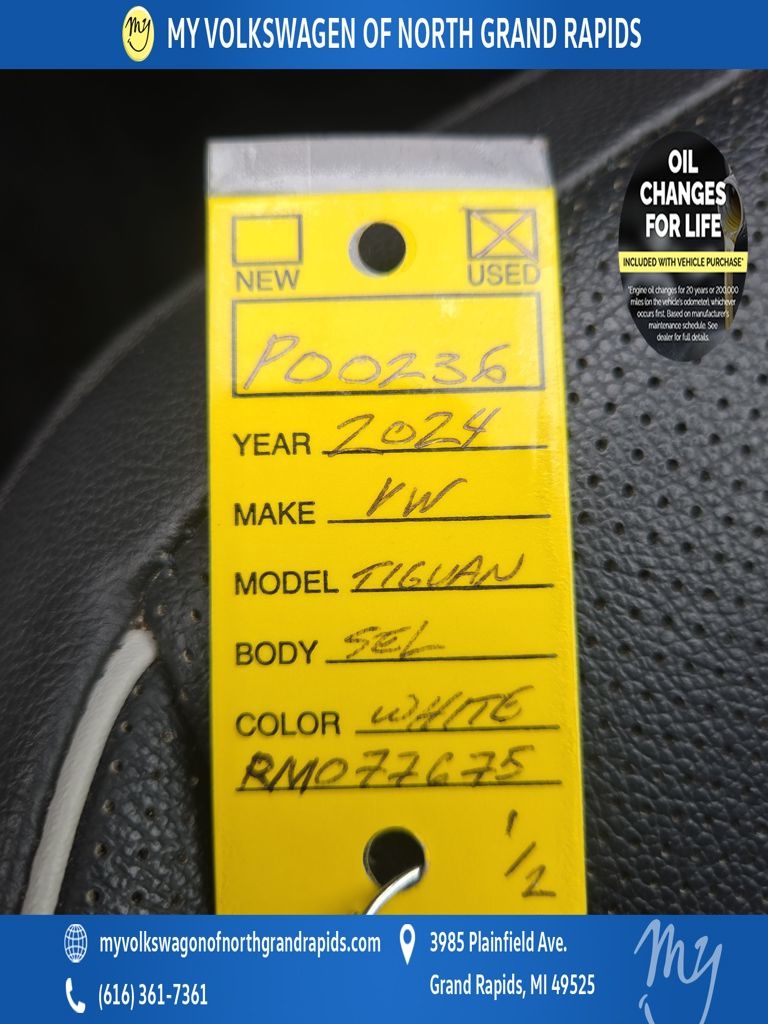 my MY VOLKSWAGEN OF NORTH GRAND RAPIDS
OIL
CHANGES
FOR LIFE
INCLUDED WITH VEHICLE PURCHASE*
*Engine oil changes for 20 years or 200,000
miles (on the vehicle's odometer), whichever
occurs first. Based on manufacturer's
maintenance schedule. See
dealer for full details.
NEW USED
P00236
YEAR 2024
MAKE VW
MODEL TIGUAN
BODY SEL
COLOR WHITE
RM077675
1/2
myvolkswagonofnorthgrandrapids.com
(616) 361-7361
3985 Plainfield Ave.
Grand Rapids, MI 49525
my